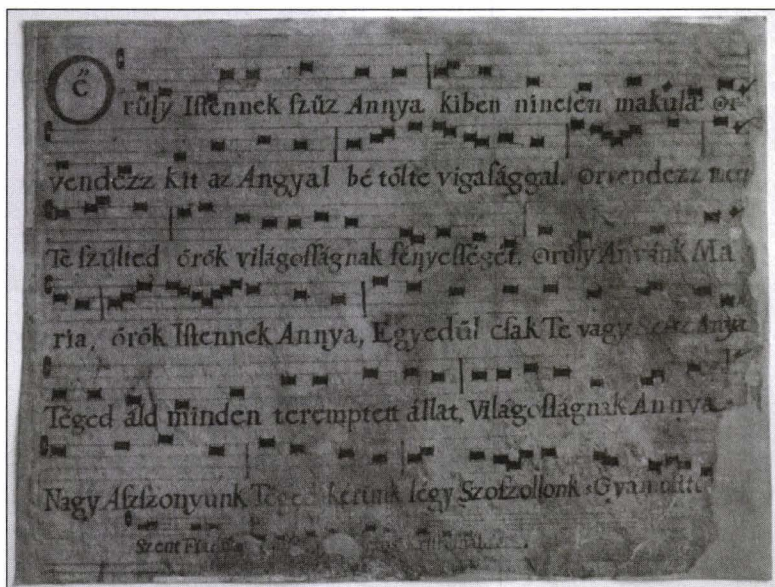 Őrűly Iſtennek ſzűz Annya kiben nincſen makula: Or
vendezz kit az Angyal bé tőlte vigaſággal. Orvendezz
Te ſzűlted őrők világoſſágnak fényeſſégét. Orűly Anyánk Ma
ria, őrők Iſtennek Annya, Egyedűl cſak Te vagy Szűz Anya
Téged áld minden teremptett állat, Világoſſágnak Annya
Nagy Aſzſzonyunk Téged kérünk légy Szoſzollonk
Szent